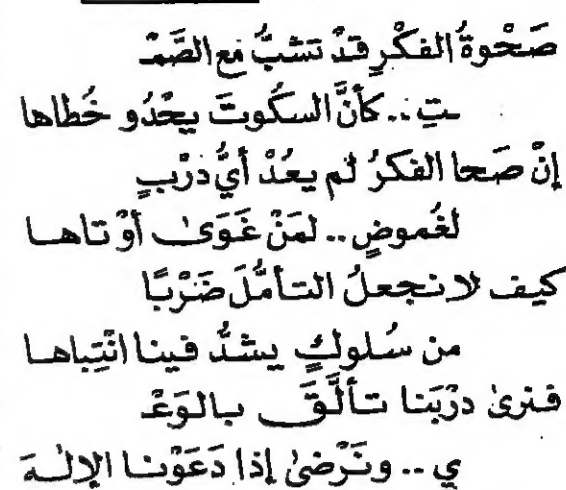 صَحْوةُ الفكْرِ قدْ تشبُّ مع الصَّمْـ
ـتِ .. كأنَّ السكُوتَ يحْدُو خُطاها
إنْ صَحا الفكرُ لم يعُدْ أيُّ دَرْبٍ
لغُموضٍ .. لمَنْ غَوَىٰ أوْ تاهـا
كيف لا نجعلُ التأمُّلَ ضَرْبًا
من سُلوكٍ يشدُّ فينا انْتِباهـا
فنرىٰ درْبَنا تـألَّقَ بـالـوَعْـ
ي .. ونَرْضىٰ إذا دَعَوْنـا الإلٰـهَ